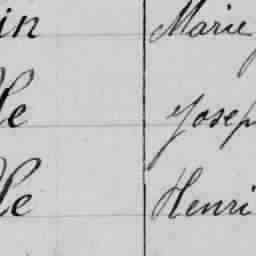 in Marie
le Joseph
le Henri